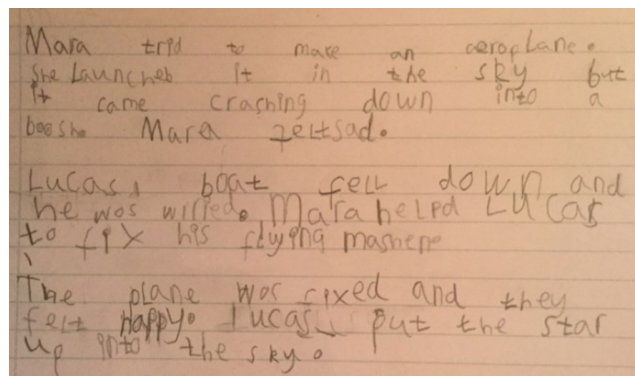 Mara trid to make an aeroplane.
She Launcheb it in the sky but
it came crashing down into a
boosh. Mara feltsad.
Lucas, boat fell down and
he wos wirred. Mara helpd Lucas
to fix his flying mashene
The plane wos fixed and they
felt happy. Lucas put the star
up into the sky.